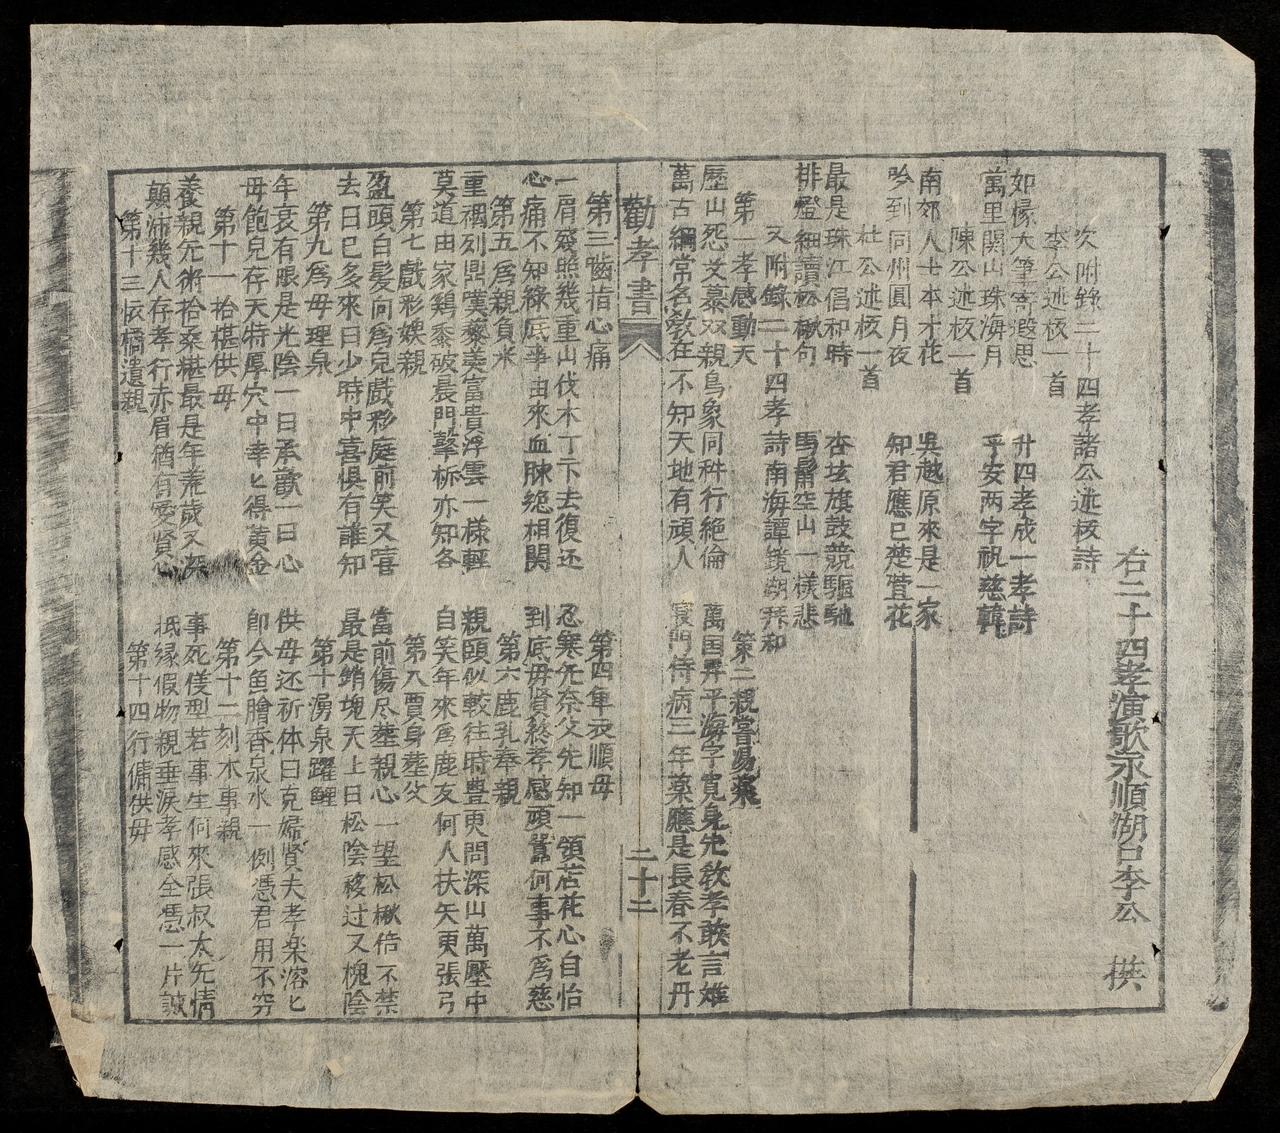 右二十四孝演歌永順湖口李公 撰
次附錄二十四孝諸公述核詩
李公述核一首
如椽大筆寄遐思 廾四孝成一孝詩
萬里関山珠海月 平安两字祝慈韓
陳公述核一首
南郊人士本才花 吳越原來是一家
吟到同州圓月夜 知君應已楚萱花
杜公述核一首
最是珠江倡和時 杏坛旗鼓競驅馳
排燈細讀松楸句 馬鬛空山一樣悲
又附錄二十四孝詩南海譚鏡湖拜和
第一孝感動天
歷山怨艾慕双親鳥象同秨行絶倫
萬古綱常名教在不知天地有頑人
第二親嘗湯藥
萬国昇平海宇寛身先敎孝敢言难
寢門侍病三年藥應是長春不老丹
勸孝書
二十二
第三嚙指心痛
一肩殘照幾重山伐木丁丁去復还
心痛不知緣底事由來血脉絶相関
第四单衣順毋
忍寒先奈父先知一領芦花心自怡
到底毋賢終孝感頑嚚何事不爲慈
第五爲親負米
重裀列鼎嘆藜羙富貴浮雲一様輕
莫道由家鷄黍破晨門擊柝亦知各
第六鹿乳奉親
親頤似較往時豊更問深山萬壑中
自笑年來爲鹿友何人扶矢更張弓
第七戲彩娛親
盈頭白髮向爲兒戲彩庭前笑又嘻
去日已多來日少時中喜惧有誰知
第八賈身塟父
當前傷尽塟親心一望松楸倍不禁
最是銷塊天上日松陰移过又槐陰
第九爲毋理泉
年衰有眼是光陰一日承歡一日心
毋飽兒存天特厚穴中幸匕得黃金
第十湧泉躍鯉
供毋还祈体曰克婦賢夫孝楽溶匕
即今魚膾香泉水一例憑君用不穷
第十一拾椹供毋
養親先術拾桑椹最是年荒歲又深
顛沛幾人存孝行亦眉猶有愛賢心
第十二刻木事親
事死儀型若事生何來張叔太先情
抵緣假物親垂淚孝感全憑一片誠
第十三怀橘遺親
第十四行傭供毋